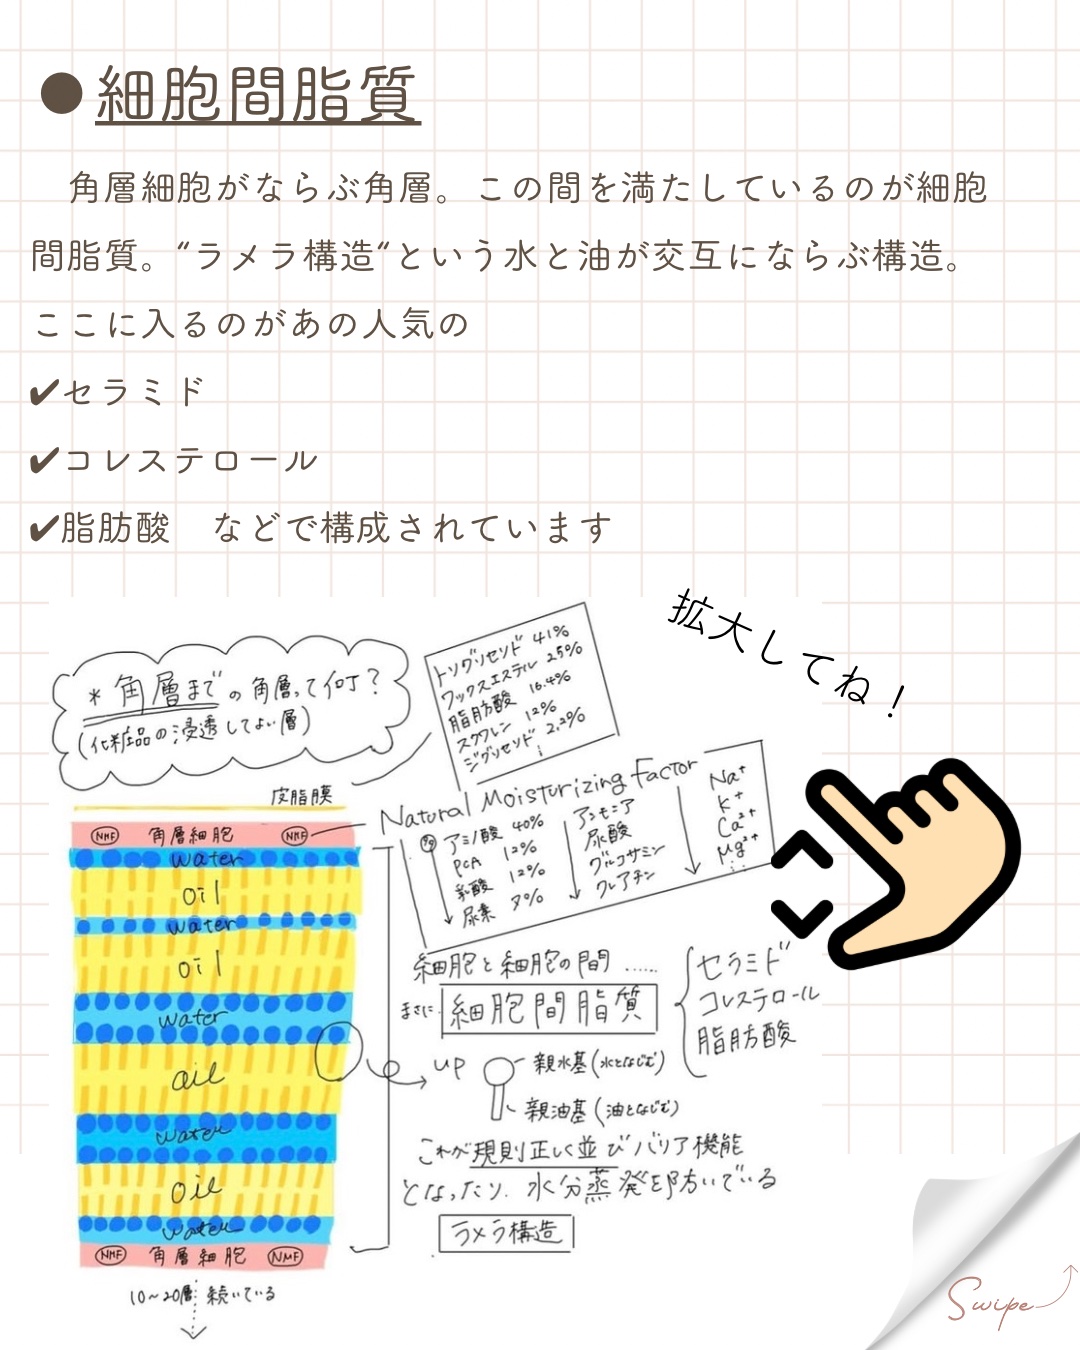 ●細胞間脂質
角層細胞がならぶ角層。この間を満たしているのが細胞
間脂質。“ラメラ構造“という水と油が交互にならぶ構造。
ここに入るのがあの人気の
✔セラミド
✔コレステロール
✔脂肪酸　などで構成されています
拡大してね！
＊角層までの角層って何？
(化粧品の浸透してよい層)
トリグリセリド 41%
ワックスエステル 25%
脂肪酸 16.4%
スクワレン 12%
ジグリセリド 2.2%
皮脂膜
Natural Moisturizing Factor
アミノ酸 40%
PCA 12%
乳酸 12%
尿素 7%
アンモニア
尿酸
グルコサミン
クレアチン
Na⁺
K⁺
Ca²⁺
Mg²⁺
NMF 角層細胞 NMF
water
oil
water
oil
water
oil
water
oil
water
NMF 角層細胞 NMF
10〜20層 続いている
細胞と細胞の間 ……
まさに 細胞間脂質
セラミド
コレステロール
脂肪酸
up
親水基(水となじむ)
親油基(油となじむ)
これが規則正しく並びバリア機能
となったり、水分蒸発を防いでいる
ラメラ構造
Swipe